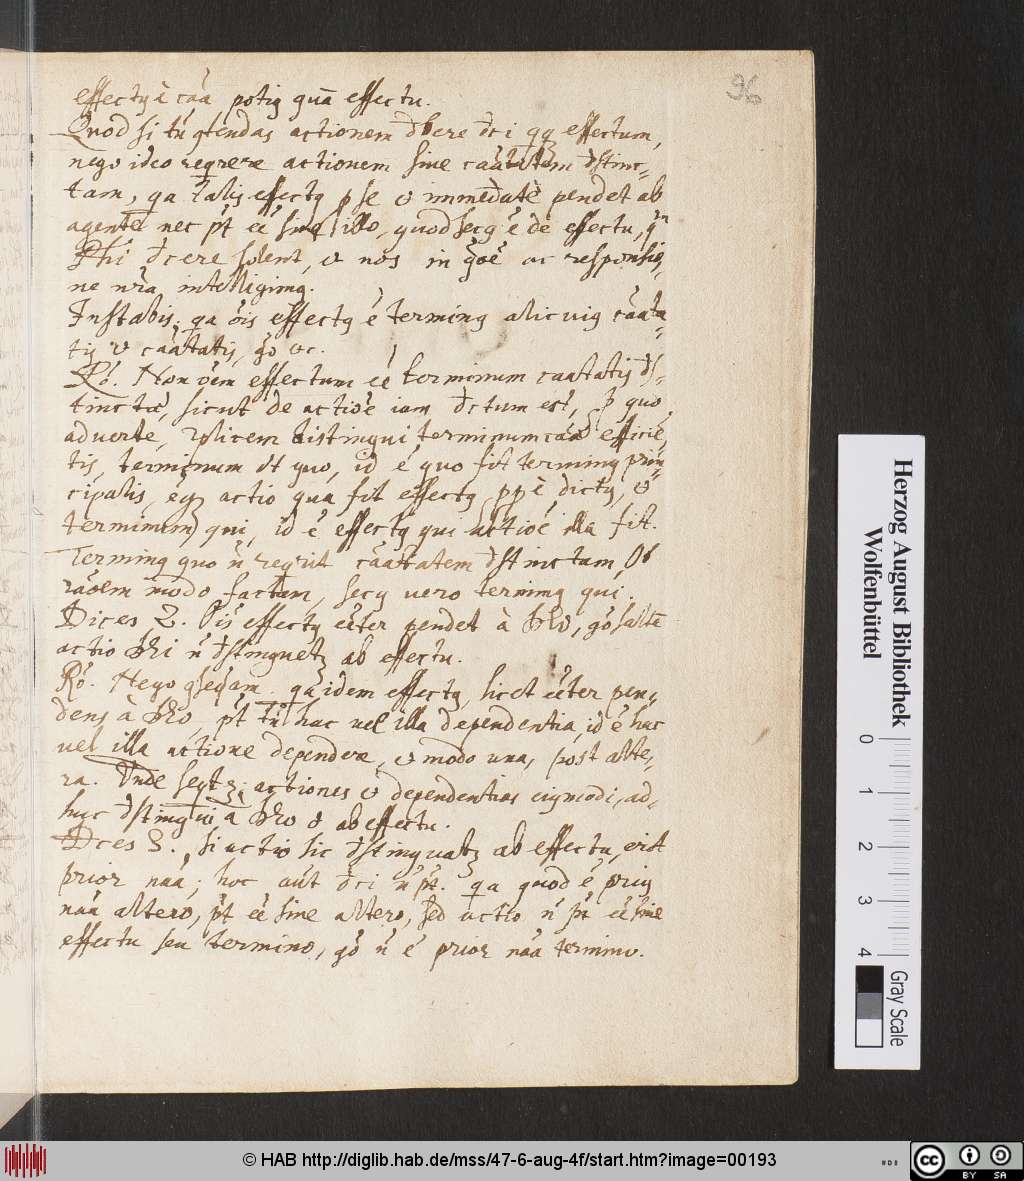 96
effectq ẽ caã, potiq quã effectu.
Quod si tñ qtendas actionem dbere dci qq effectum,
nego ideo reqrere actionem sine caãtatem dstinc-
tam, qa talis effectq p se & immedate pendet ab
agente nec pt eẽ sine illo, quod secq ẽ de effectu,
Phi dcere solent, & nos in qõe ac responsio,
ne nrã intelligimq.
Instabis. qa oĩs effectq ẽ terminq alicuiq caãta-
tis & caãtatis, gõ &c.
Rõ. Non oẽm effectum eẽ terminum caãtatis ds-
tinctæ, sicut de actioẽ iam dctum est, P quo
adverte, dplicem distingui terminum caæ efficiẽ,
tis, terminum ut quo, id ẽ quo fit terminq prin-
cipalis, eqz actio qua fit effectq ppẽ dictq, &
terminum qui, id ẽ effectq qui actioẽ illa fit.
Terminq quo ñ reqrit caãtatem dstinctam, Ob
raõem modo factam, secq vero terminq qui.
Dices 2. Oĩs effectq eẽter pendet à Deo, gõ saltẽ
actio Dei ñ dstinguetz ab effectu.
Rõ. Nego qseqam. qa idem effectq, licet eẽter pen-
dens à Deo, pt tñ hac vel illa dependentia, id ẽ hac
vel illa actione dependere, & modo una, post alte,
ra. Unde seqtz; actiones & dependentias eiqmodi, ad-
huc dstingui à Deo & ab effectu.
Dces 3. si actio sic dstinguatz ab effectu, erit
prior naã; hoc aũt dci ñ pt. qa quod ẽ priq
naã altero, pt eẽ sine altero, sed actio ñ pt eẽ sine
effectu seu termino, gõ ñ ẽ prior naã termino.
Herzog August Bibliothek
Wolfenbüttel
0 1 2 3 4
Gray Scale
© HAB http://diglib.hab.de/mss/47-6-aug-4f/start.htm?image=00193
cc BY SA